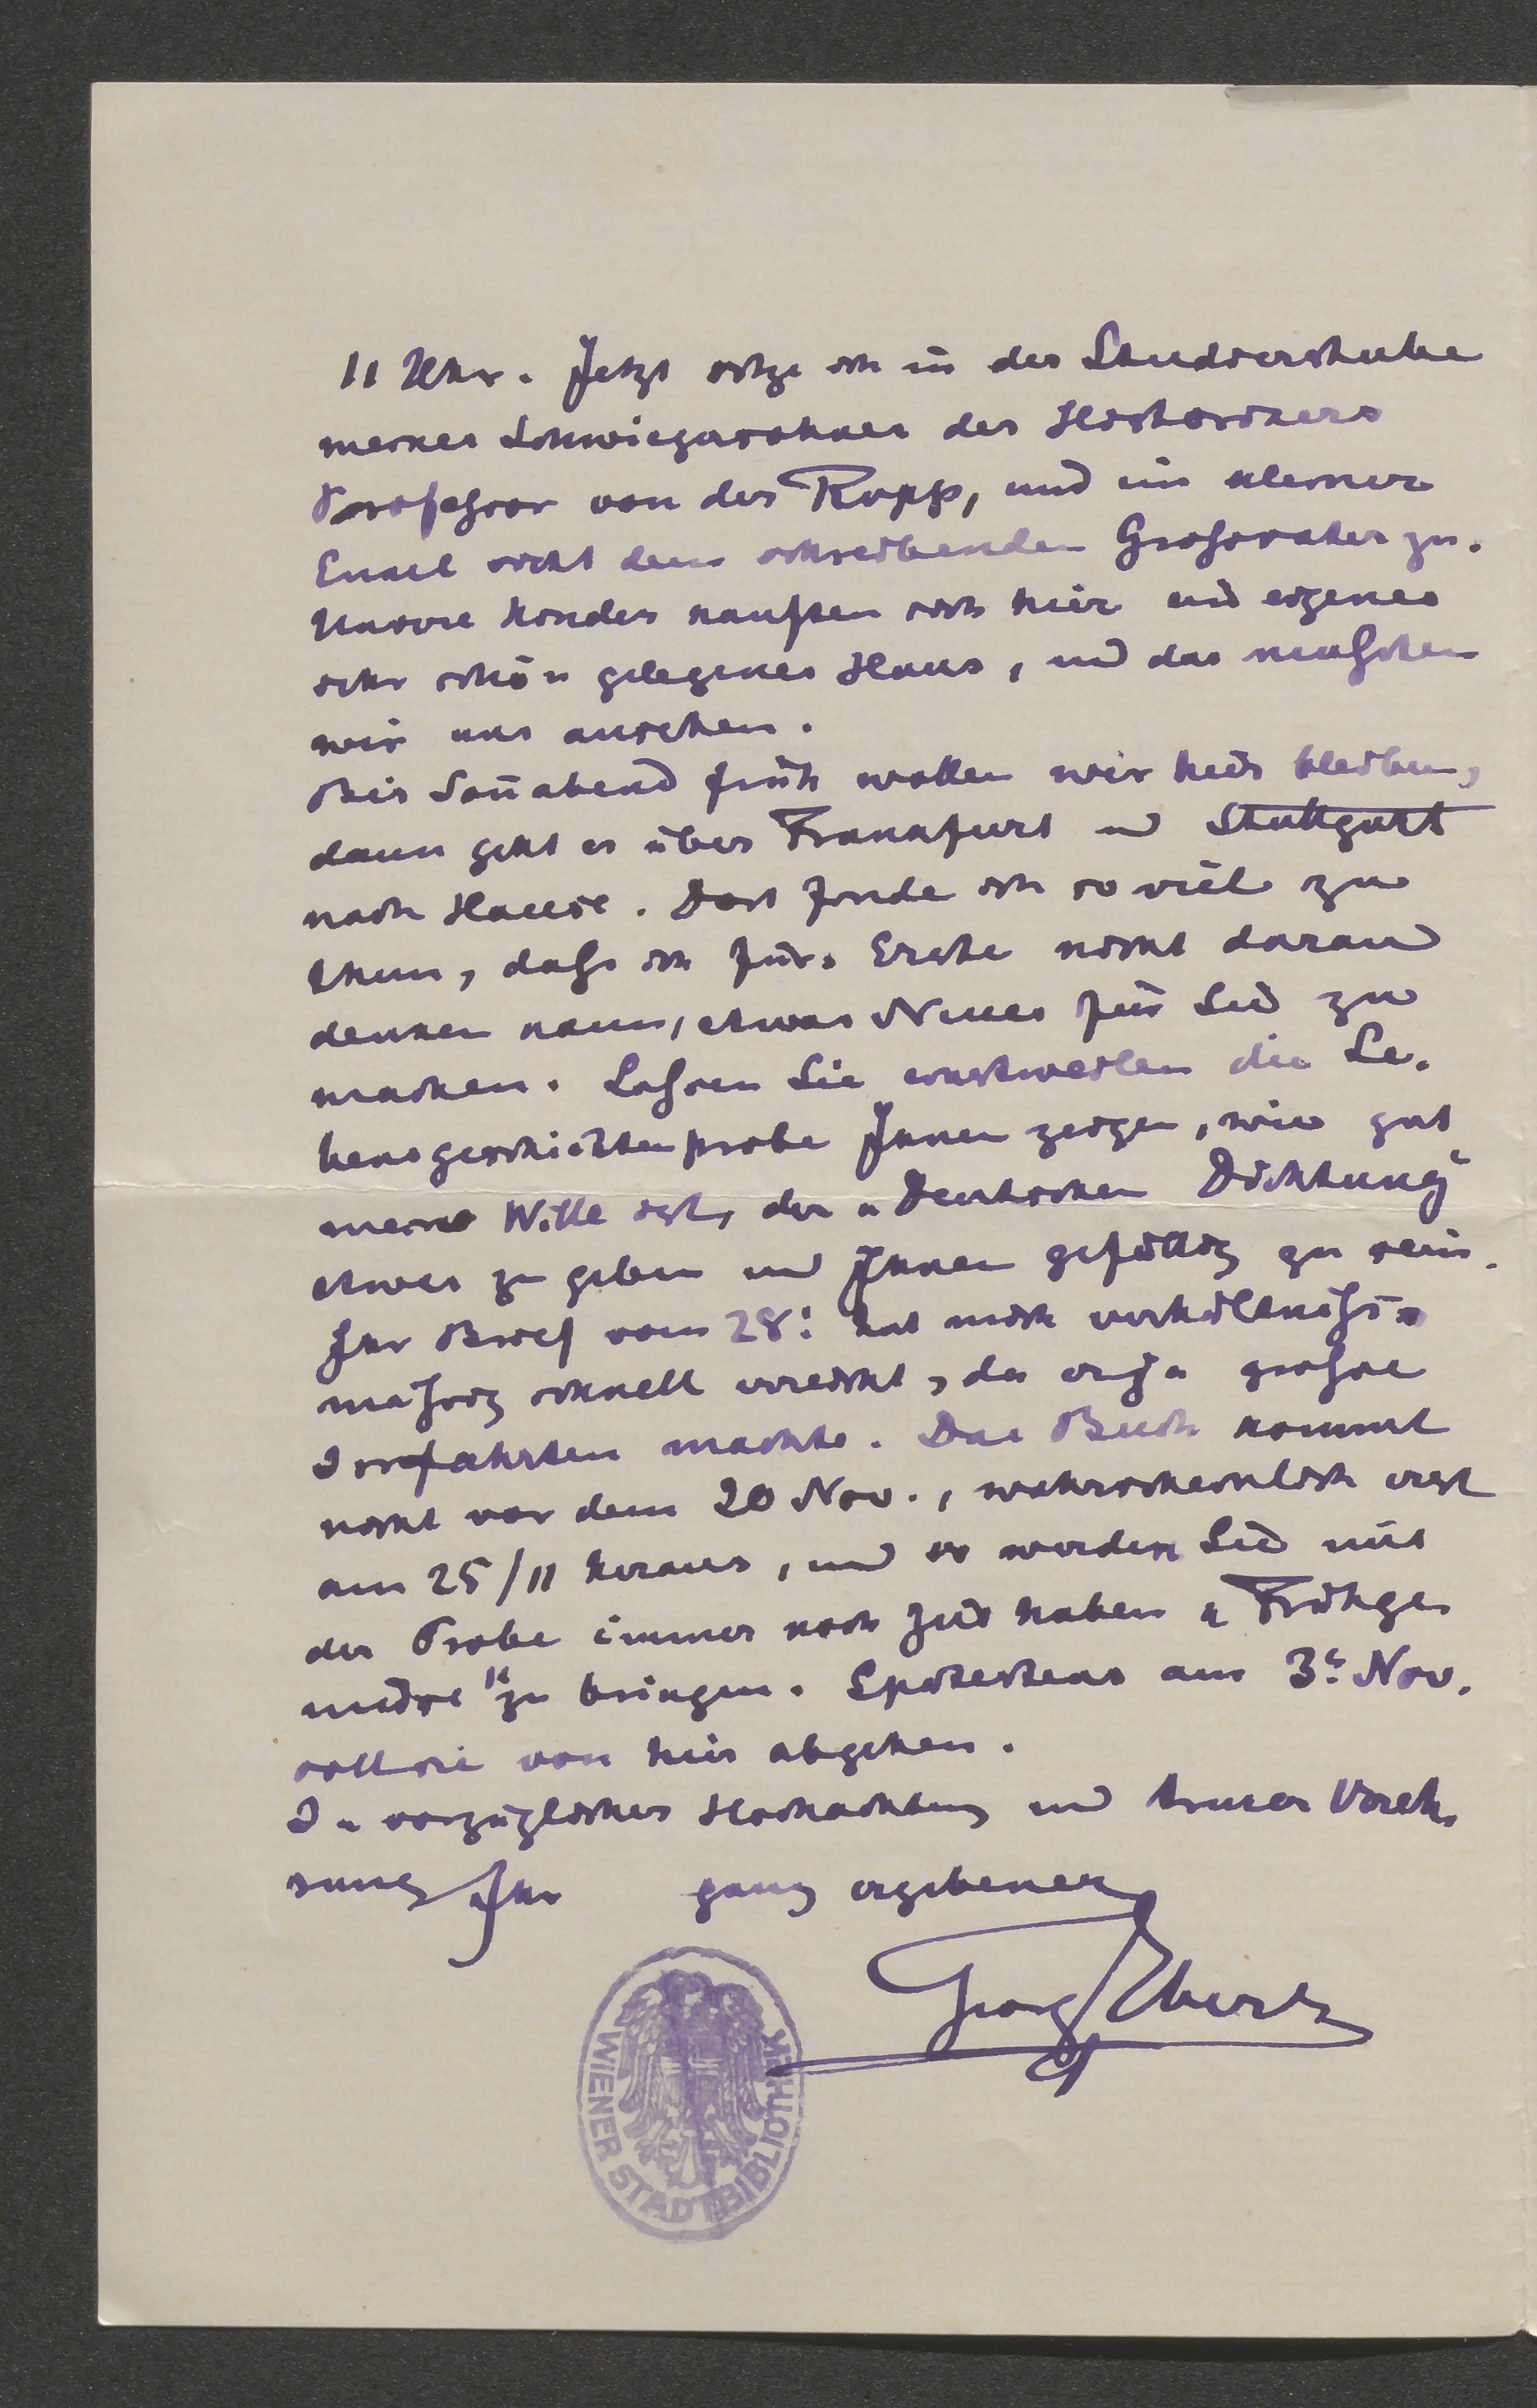 11 Uhr. Jetzt sitze ich in der Studierstube
meines Schwiegersohnes des Historikers
Professor von der Ropp, und ein kleiner
Enkel sieht dem schreibenden Großvater zu.
Unsere Kinder kauften sich hier ein eigenes
sehr schön gelegenes Haus, und das mußten
wir uns ansehen.
Bis Sonnabend früh wollen wir hier bleiben,
dann geht es über Frankfurt und Stuttgart
nach Hause. Dort finde ich so viel zu
thun, daß ich für's Erste nicht daran
denken kann, etwas Neues für Sie zu
machen. Laßen Sie einstweilen die Le-
bensgeschichtenprobe Ihnen zeigen, wie gut
mein Wille ist, der „Deutschen Dichtung"
etwas zu geben und Ihnen gefällig zu sein.
Ihr Brief vom 28. hat mich verhältniß-
mäßig schnell erreicht, da er ja große
Irrfahrten machte. Das Buch kommt
nicht vor dem 20 Nov., wahrscheinlich erst
am 25/11 heraus, und so werden Sie mit
der Probe immer noch Zeit haben „Frühge-
müse" zu bringen. Spätestens am 3. Nov.
soll sie von hier abgehen.
In vorzüglicher Hochachtung und treuer Vereh-
rung Ihr ganz ergebener
Georg Ebers
WIENER STADTBIBLIOTHEK